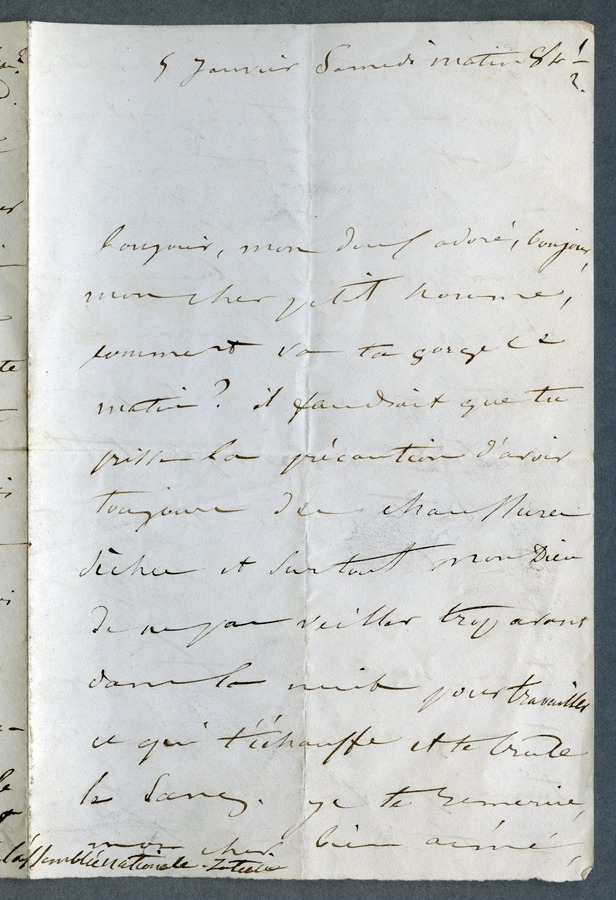 5 Janvier Samedi matin 8h ½
bonjour, mon doux adoré, bonjour,
mon cher petit homme,
comment va ta gorge ce
matin ? il faudrait que tu
prisse la précaution d'avoir
toujours des chaussures
sèches et surtout mon Dieu
de ne pas veiller trop avant
dans la nuit pour travailler
ce qui t'échauffe et te brûle
le sang. je te remercie,
mon cher bien aimé,
l'assemblée nationale.